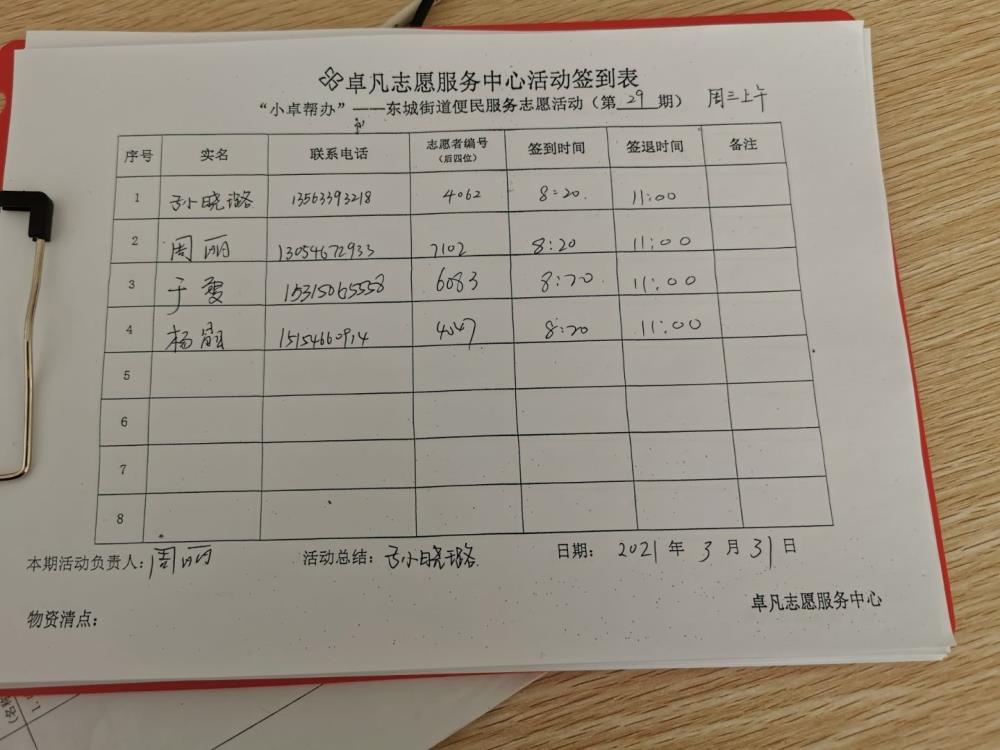 卓凡志愿服务中心活动签到表
“小卓帮办”——东城街道便民服务志愿活动（第 29 期） 周三上午
序号 实名 联系电话 志愿者编号（后四位） 签到时间 签退时间 备注
1 孙晓璐 13563393218 4062 8:20 11:00
2 周丽 13054672933 7102 8:20 11:00
3 于雯 15315065558 6083 8:20 11:00
4 杨 15154660914 4047 8:20 11:00
5
6
7
8
本期活动负责人：周丽 活动总结：孙晓璐 日期：2021年3月31日
物资清点：
卓凡志愿服务中心